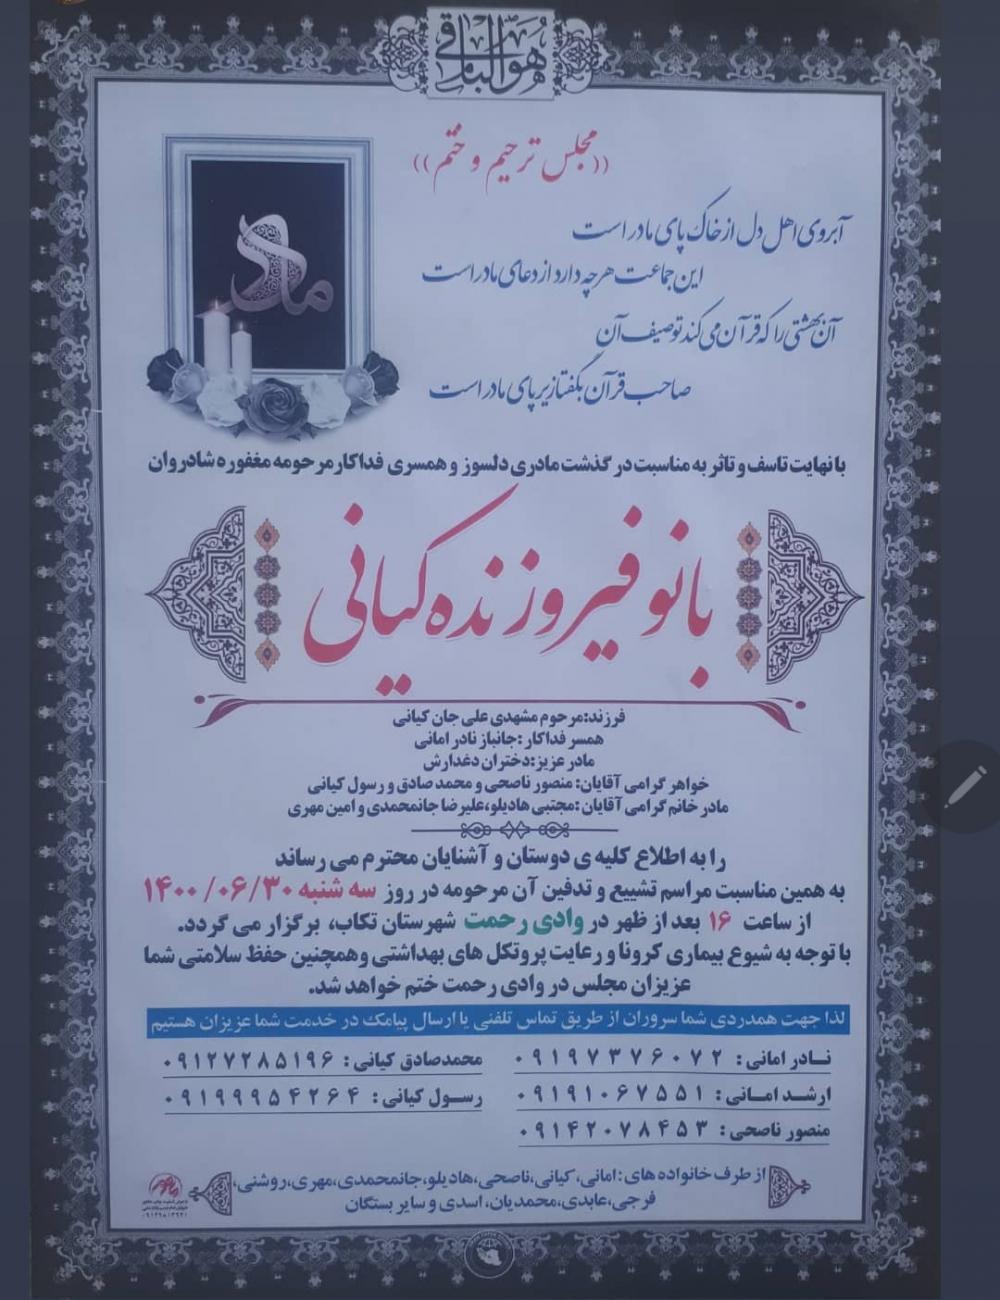 هو الباقی
((مجلس ترحیم و ختم))
آبروی اهل دل از خاک پای مادر است
این جماعت هرچه دارد از دعای مادر است
آن بهشتی را که قرآن می کند توصیف آن
صاحب قرآن بگفتا زیر پای مادر است
مادر
با نهایت تاسف و تاثر به مناسبت درگذشت مادری دلسوز و همسری فداکار مرحومه مغفوره شادروان
بانو فیروزنده کیانی
فرزند:مرحوم مشهدی علی جان کیانی
همسر فداکار :جانباز نادر امانی
مادر عزیز:دختران دغدارش
خواهر گرامی آقایان: منصور ناصحی و محمد صادق و رسول کیانی
مادر خانم گرامی آقایان :مجتبی هادیلو،علیرضا جانمحمدی و امین مهری
را به اطلاع کلیه ی دوستان و آشنایان محترم می رساند
به همین مناسبت مراسم تشییع و تدفین آن مرحومه در روز سه شنبه ۱۴۰۰/۰۶/۳۰
از ساعت ۱۶ بعد از ظهر در وادی رحمت شهرستان تکاب، برگزار می گردد.
با توجه به شیوع بیماری کرونا و رعایت پروتکل های بهداشتی وهمچنین حفظ سلامتی شما
عزیزان مجلس در وادی رحمت ختم خواهد شد.
لذا جهت همدردی شما سروران از طریق تماس تلفنی یا ارسال پیامک در خدمت شما عزیزان هستیم
نادر امانی: ۰۹۱۹۷۳۷۶۰۷۲ محمدصادق کیانی: ۰۹۱۲۷۲۸۵۱۹۶
ارشد امانی: ۰۹۱۹۱۰۶۷۵۵۱ رسول کیانی: ۰۹۱۹۹۹۵۴۲۶۴
منصور ناصحی: ۰۹۱۴۲۰۷۸۴۵۳
از طرف خانواده های: امانی، کیانی،ناصحی،هادیلو،جانمحمدی،مهری،روشنی،
فرجی،عابدی،محمدیان، اسدی و سایر بستگان